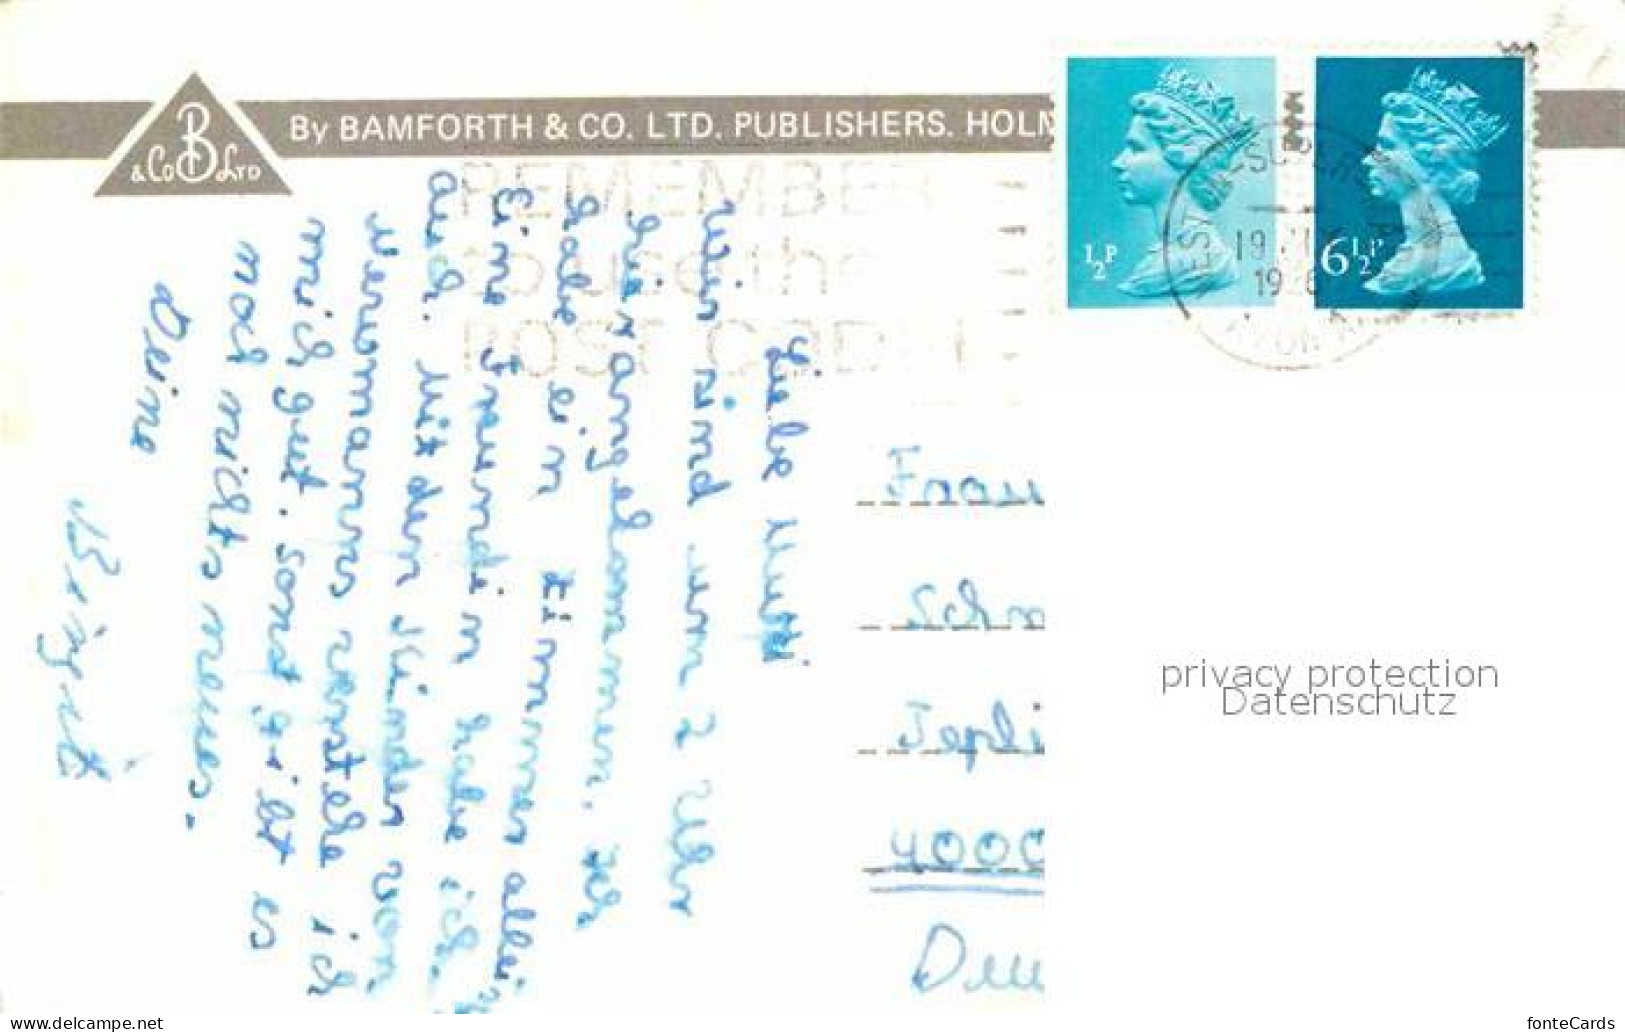 B
& Co Ltd
By BAMFORTH & CO. LTD. PUBLISHERS. HOLM
REMEMBER
to use the
POST CODE
½P
6½P
WEST
19
Liebe Mutti
Wir sind um 2 Uhr
hier angekommen. Ich
habe ein Zimmer allein,
Eine Freundin habe ich
auch. Mit den Kinder von
Versmanns verstehe ich
mich gut. Sonst gibt es
noch nichts neues.
Deine
Birgit
Frau
4000
privacy protection
Datenschutz
www.delcampe.net
fonteCards